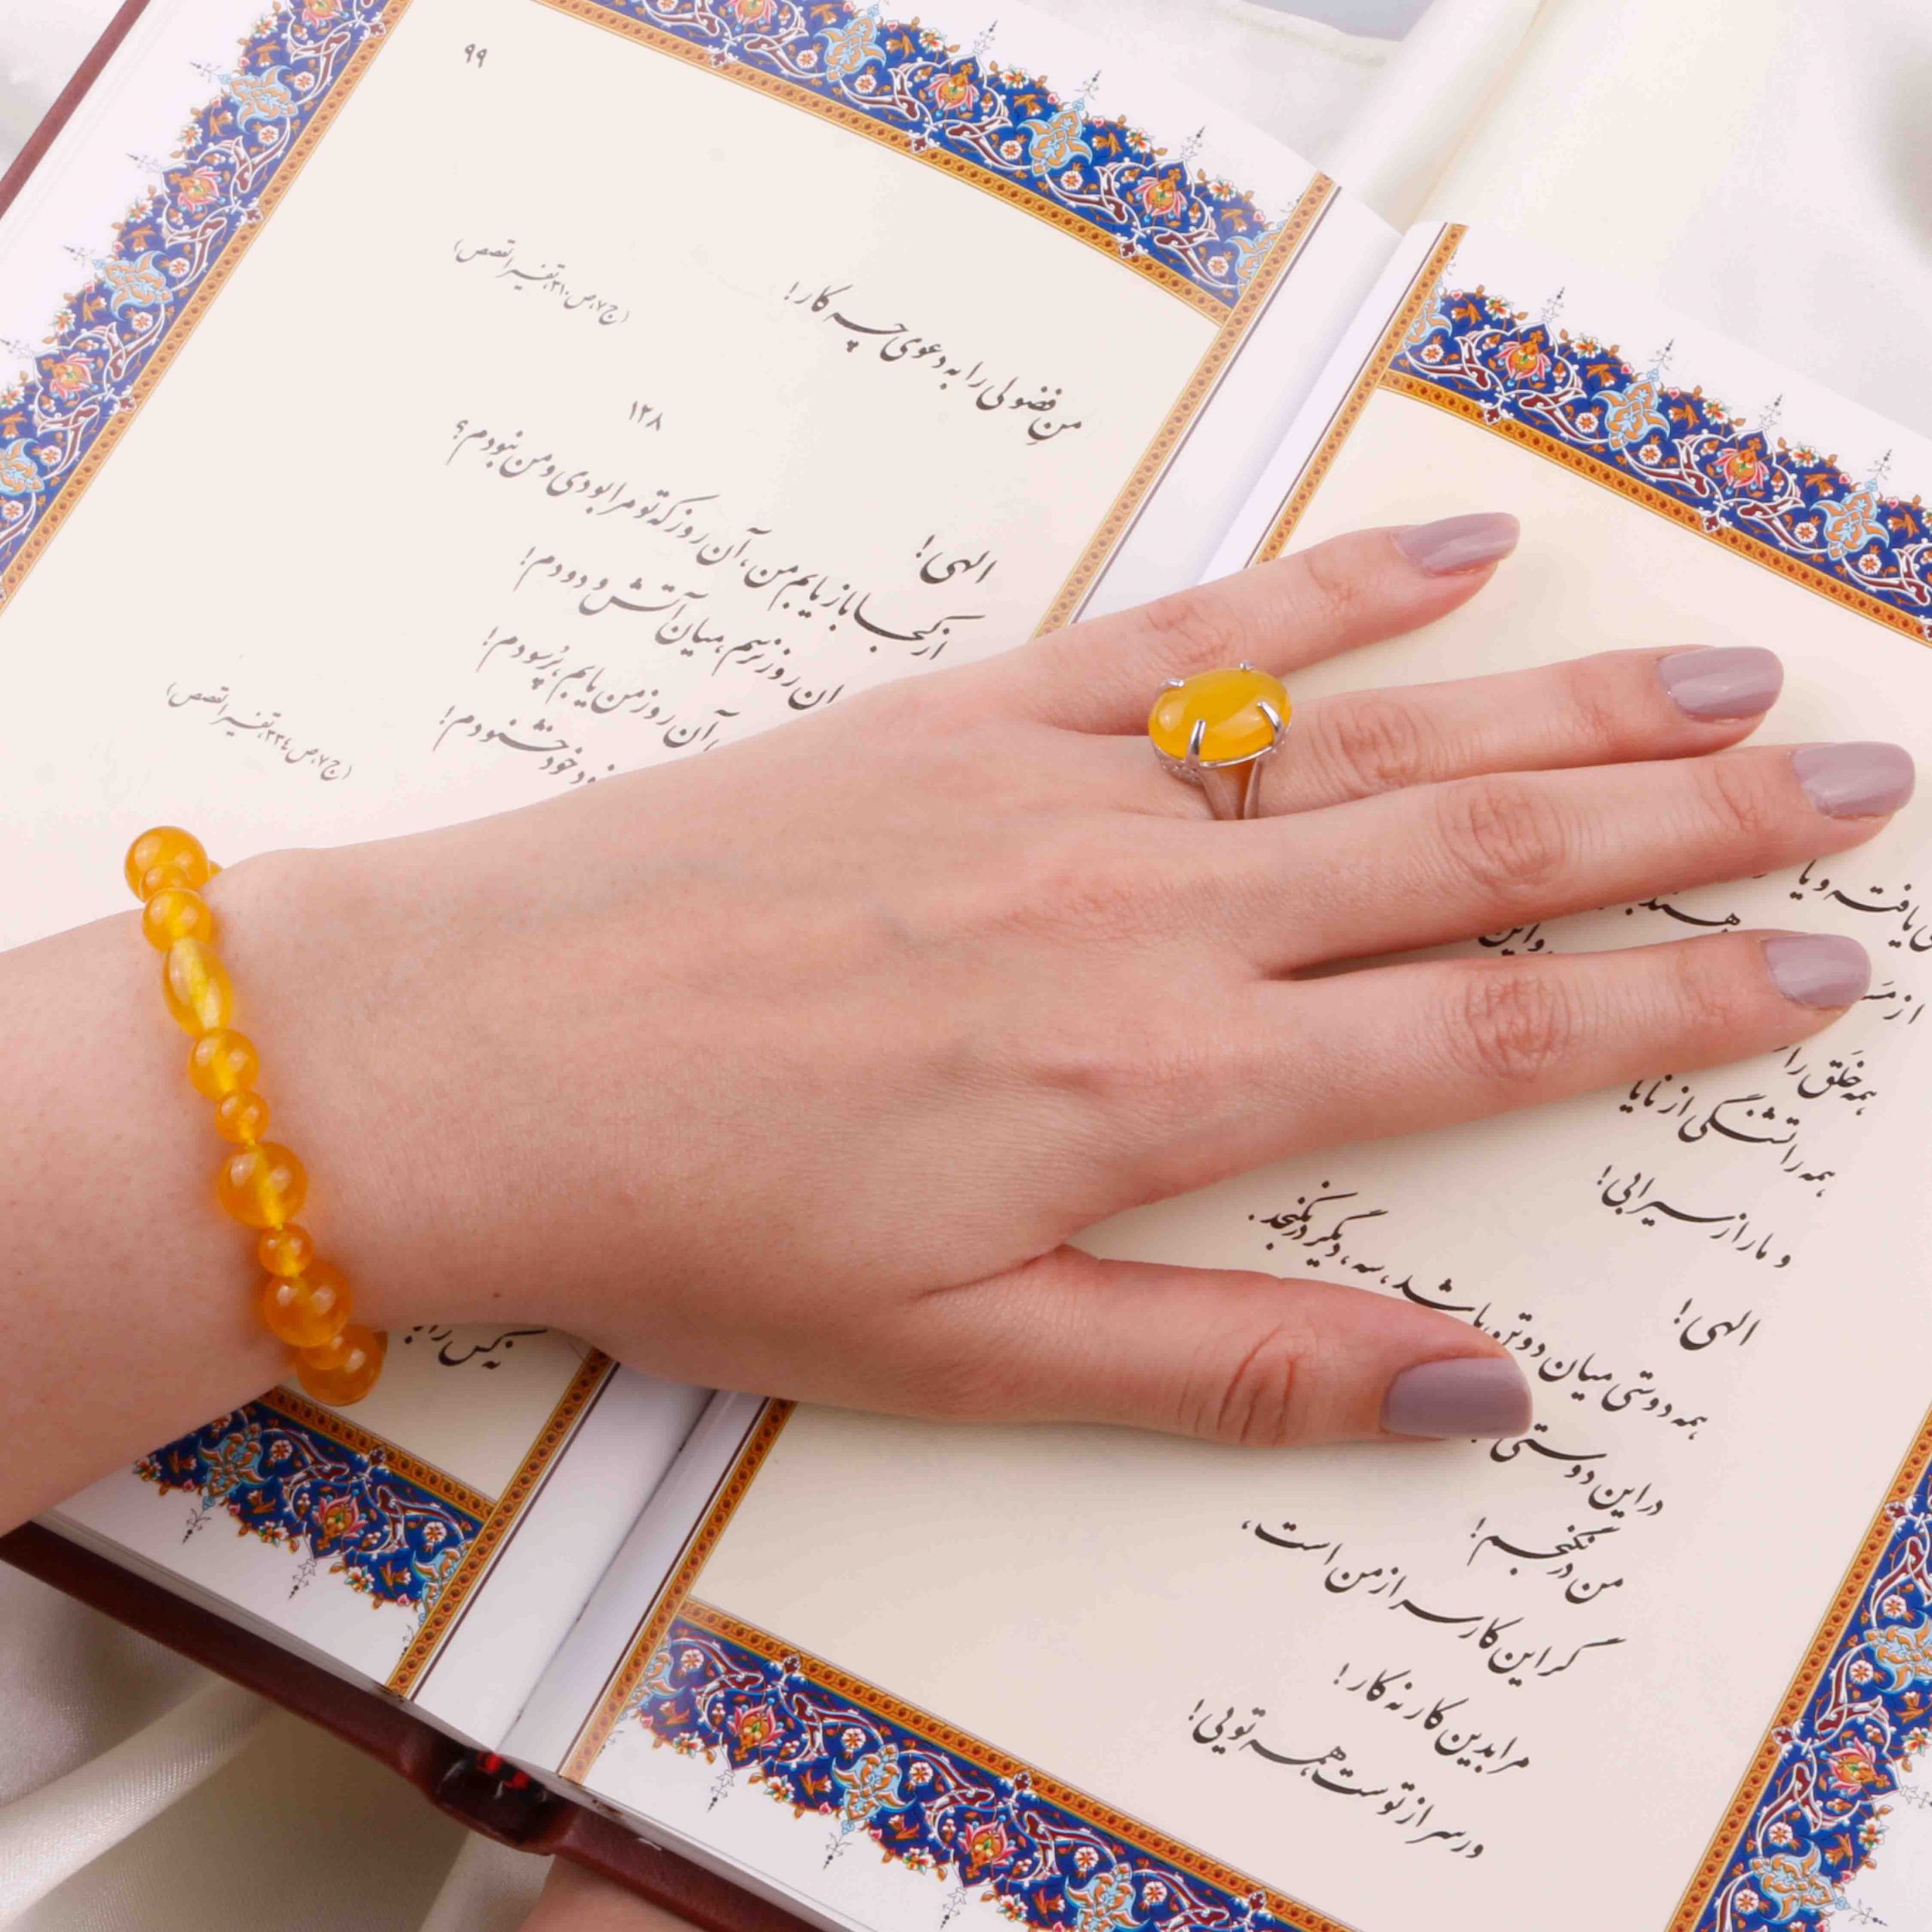 ۹۹
من فضولی را به دعوی چه کار!
(ج ۷، ص ۳۱۰، تفسیر القصص)
۱۲۸
الهی!
از کجا باز یابم من، آن روز که تو مرا بودی و من نبودم؟
آن روز نرسم، میان آتش و دودم!
آن روز من یابم، پر سودم!
خود خشنودم!
(ج ۷، ص ۲۳۴، تفسیر القصص)
یافته و یا
همه خلق را
همه را تشنگی از نایا
و ما را از سیرابی!
الهی!
همه دوستی میان دو تن باشد، سه، دیگر در نگنجد.
در این دوستی
من در نگنجم!
گر این کار سر از من است،
مرا بدین کار نه کار!
ور سر از توست همه تویی!